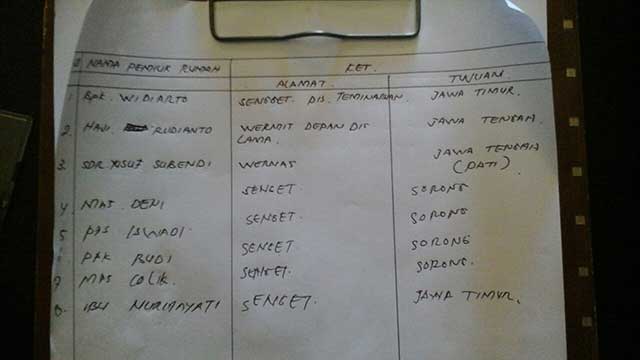 NAMA PEMILIK RUMAH KET.
ALAMAT TUJUAN
1. Bpk. WIDIARTO SENGGET. DIS. TEMINABUAN JAWA TIMUR.
2. HAJI RUDIANTO WERMIT DEPAN DIS LAMA. JAWA TENGAH.
3. SDR YUSUF SUBENDI WERNAS JAWA TENGAH (PATI)
4 MAS DENI SENGET SORONG
5 ISWADI. SENGET SORONG
6 PAK BUDI SENGET SORONG
7 MAS COLIK. SENGET. SORONG.
8. IBU NURHAYATI SENGET. JAWA TIMUR.